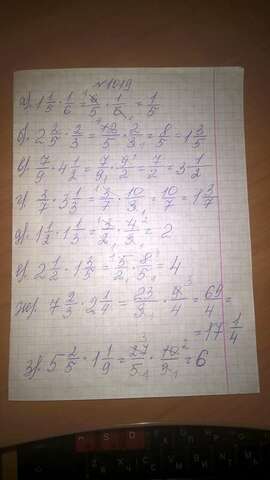 №1019
а) 1 1/5 · 1/6 = 6/5 · 1/6 = 1/5
б) 2 2/5 · 2/3 = 12/5 · 2/3 = 8/5 = 1 3/5
в) 7/9 · 4 1/2 = 7/9 · 9/2 = 7/2 = 3 1/2
г) 3/7 · 3 1/3 = 3/7 · 10/3 = 10/7 = 1 3/7
д) 1 1/2 · 1 1/3 = 3/2 · 4/3 = 2
е) 2 1/2 · 1 3/5 = 5/2 · 8/5 = 4
ж) 7 2/3 · 2 1/4 = 23/3 · 9/4 = 69/4 =
= 17 1/4
з) 5 2/5 · 1 1/9 = 27/5 · 10/9 = 6